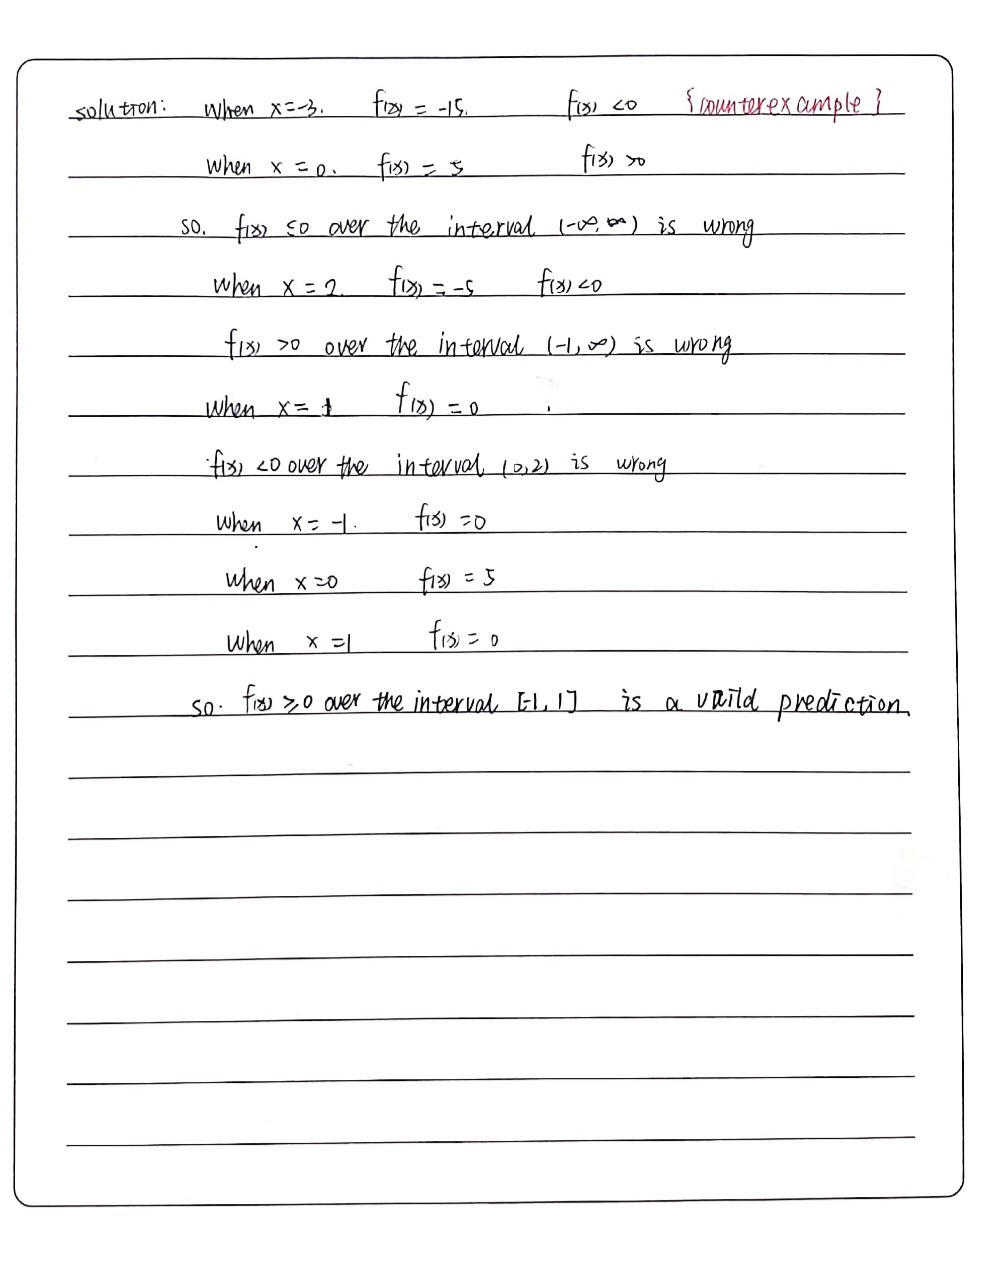 solution: When x=-3. f(x) = -15. f(x) <0 {counterexample}
When x = 0. f(x) = 5 f(x) >0
so. f(x) ≤0 over the interval (-∞,∞) is wrong
when x = 2. f(x) = -5 f(x) <0
f(x) >0 over the interval (-1, ∞) is wrong
when x= 1 f(x) = 0
f(x) <0 over the interval (0,2) is wrong
when x= -1. f(x) =0
when x =0 f(x) = 5
When x =1 f(x) = 0
so. f(x) ≥0 over the interval [-1, 1] is a vaild prediction.